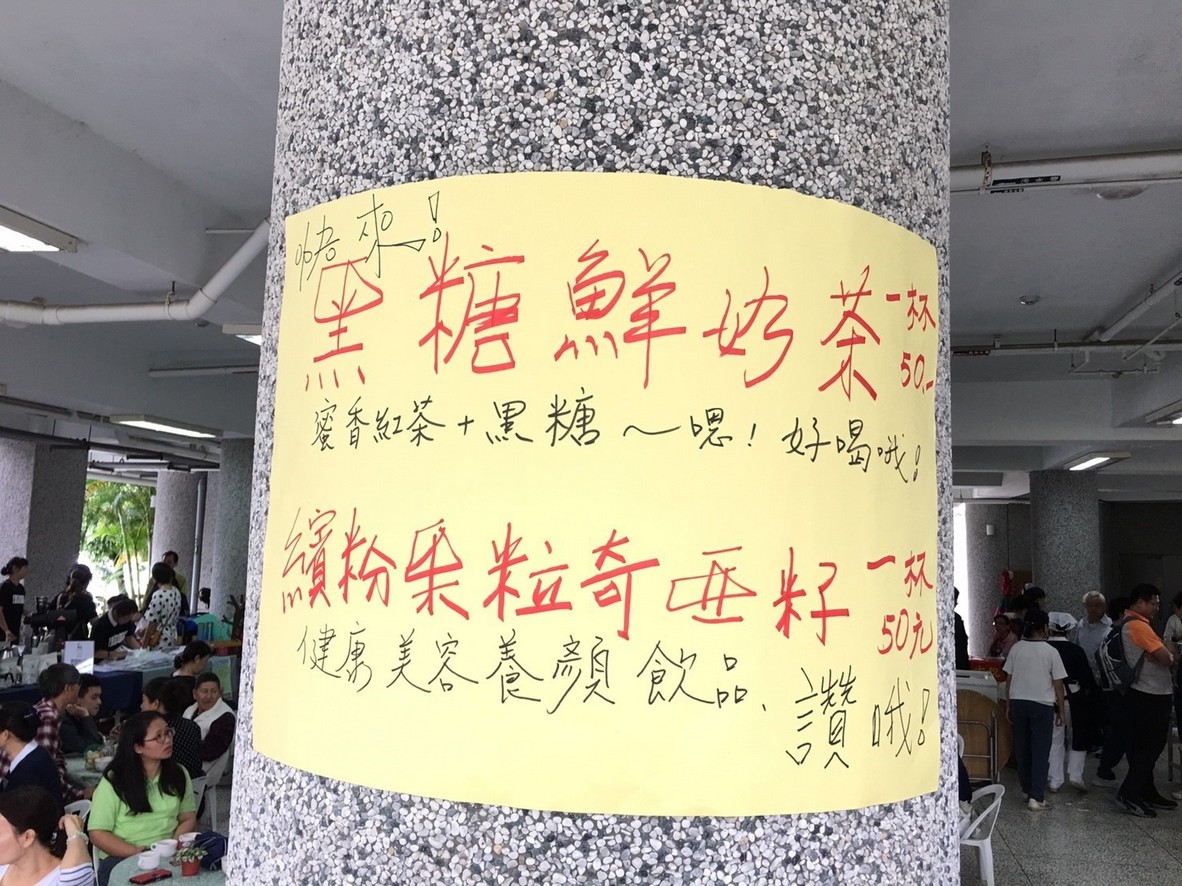 快來!
黑糖鮮奶茶 一杯 50.-
蜜香紅茶+黑糖~嗯!好喝哦!
繽粉果粒奇亞籽 一杯 50元
健康美容養顏飲品、讚哦!